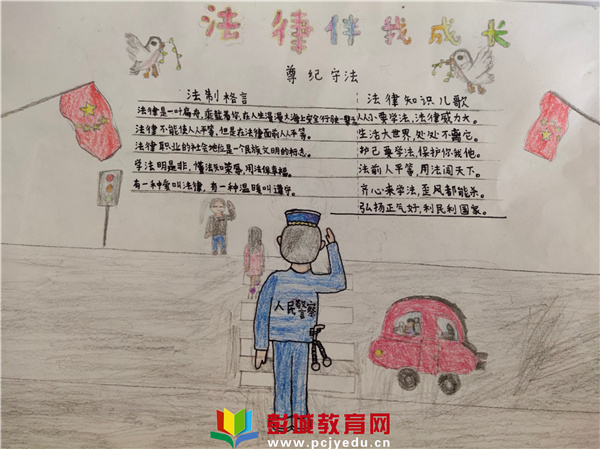 法律伴我成长
尊纪守法
法制格言
法律是一叶扁舟，乘载着你，在人生漫漫大海上安全行驶一辈子。
法律不能使人人平等，但是在法律面前人人平等。
法律职业的社会地位是一个民族文明的标志。
学法明是非，懂法知荣辱，用法保幸福。
有一种爱叫法律，有一种温暖叫遵守。
法律知识儿歌
人人小要学法，法律威力大。
生活大世界，处处不离它。
护己要学法，保护你我他。
法前人平等，用法闯天下。
齐心来学法，歪风都能杀。
弘扬正气好，利民利国家。
人民警察
彭城教育网
www.pcjyedu.cn